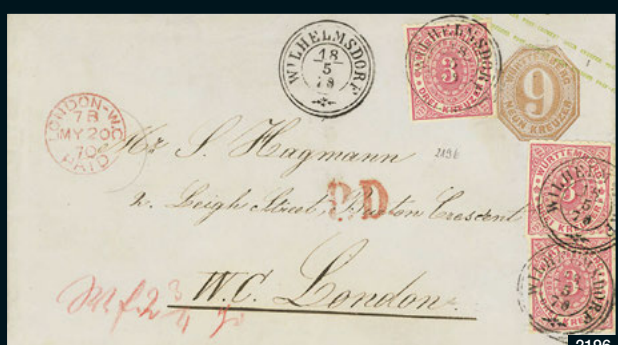 WILHELMSDORF
18
5
78
WILHELMSDORF
3
DREI KREUZER
WÜRTTEMBERG
9
NEUN KREUZER
LONDON-W.C
7B
MY 20
70
PAID
Mr S. Hagmann
2196
2. Leigh Street, Burton Crescent
P.D
WÜRTTEMBERG
3
DREI KREUZER
WILHELMSDORF
W.C. London.
3
WILHELMSDORF
2196